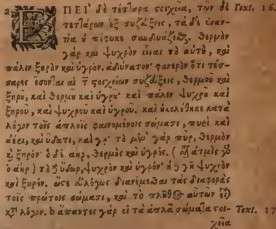 ΕΠΕΙ δὲ τέτταρα στοιχεῖα, τῶν δὲ Text. 16.
τεττάρων ἓξ συζεύξεις, τὰ δ' ἐναν-
τία οὐ πέφυκε συνδυάζεσθαι· θερμὸν
γὰρ καὶ ψυχρὸν εἶναι τὸ αὐτὸ, καὶ
πάλιν ξηρὸν καὶ ὑγρὸν, ἀδύνατον· φανερὸν ὅτι τέσ-
σαρες ἔσονται αἱ τῶν στοιχείων συζεύξεις, θερμοῦ καὶ
ξηροῦ, καὶ θερμοῦ καὶ ὑγροῦ· καὶ πάλιν ψυχροῦ καὶ
ξηροῦ, καὶ ψυχροῦ καὶ ὑγροῦ. καὶ ἠκολούθηκε κατὰ
λόγον τοῖς ἁπλοῖς φαινομένοις σώμασι, πυρὶ καὶ
ἀέρι, καὶ ὕδατι, καὶ γῇ· τὸ μὲν γὰρ πῦρ, θερμὸν
καὶ ξηρόν· ὁ δὲ ἀὴρ, θερμὸς καὶ ὑγρός. (οἷον ἀτμὶς γὰρ
ὁ ἀὴρ) τὸ δ' ὕδωρ, ψυχρὸν καὶ ὑγρόν· ἡ δὲ γῆ ψυχρὸν
καὶ ξηρόν. ὥστε εὐλόγως διανέμεσθαι τὰς διαφορὰς
τοῖς πρώτοις σώμασι, καὶ τὸ πλῆθος αὐτῶν εἶναι
κατὰ λόγον. b ἅπαντες γὰρ οἱ τὰ ἁπλᾶ σώματα στοι- Text. 17
χεῖα